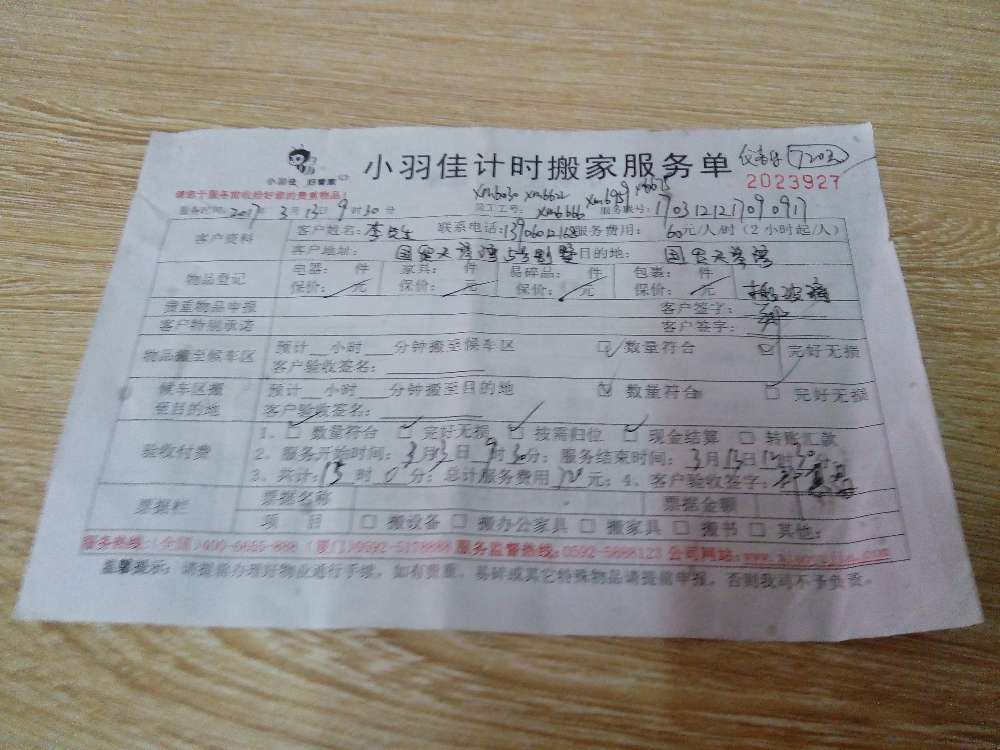 小羽佳 好管家
小羽佳计时搬家服务单 7203
2023927
请您于服务前收拾好您的贵重物品!
xm6030 xm6622 xm6959
服务时间:2017年3月13日9时30分 员工工号: xm6666 服务账号:17031212170917
客户资料 客户姓名:李先生 联系电话: 服务费用: 60元/人/时(2小时起/人)
客户地址: 目的地:
物品登记 电器: 件 家具: 件 易碎品: 件 包裹: 件
保价: 元 保价: 元 保价: 元 保价: 元 搬玻璃
贵重物品申报 客户签字:
客户特别承诺 客户签字:
物品搬至候车区 预计__小时___分钟搬至候车区 ☑ 数量符合 ☑ 完好无损
客户验收签名:
候车区搬至目的地 预计__小时___分钟搬至目的地 ☑ 数量符合 ☑ 完好无损
客户验收签名:
验收付费 1、☑ 数量符合 ☑ 完好无损 ☑ 按需归位 ☑ 现金结算 □ 转账汇款
2、服务开始时间:3月13日9时30分;服务结束时间:3月13日12时30分
3、共计:15时0分;总计服务费用 元;4、客户验收签字:
票据栏 票据名称 票据金额
项 目 □ 搬设备 □ 搬办公家具 □ 搬家具 □ 搬书 □ 其他:
服务热线:(全国)400-6655-888 (厦门)0592-5178888 服务监督热线:0592-5888123 公司网站:
温馨提示:请提前办理好物业通行手续,如有贵重、易碎或其它特殊物品请提前申报,否则我司不予负责。